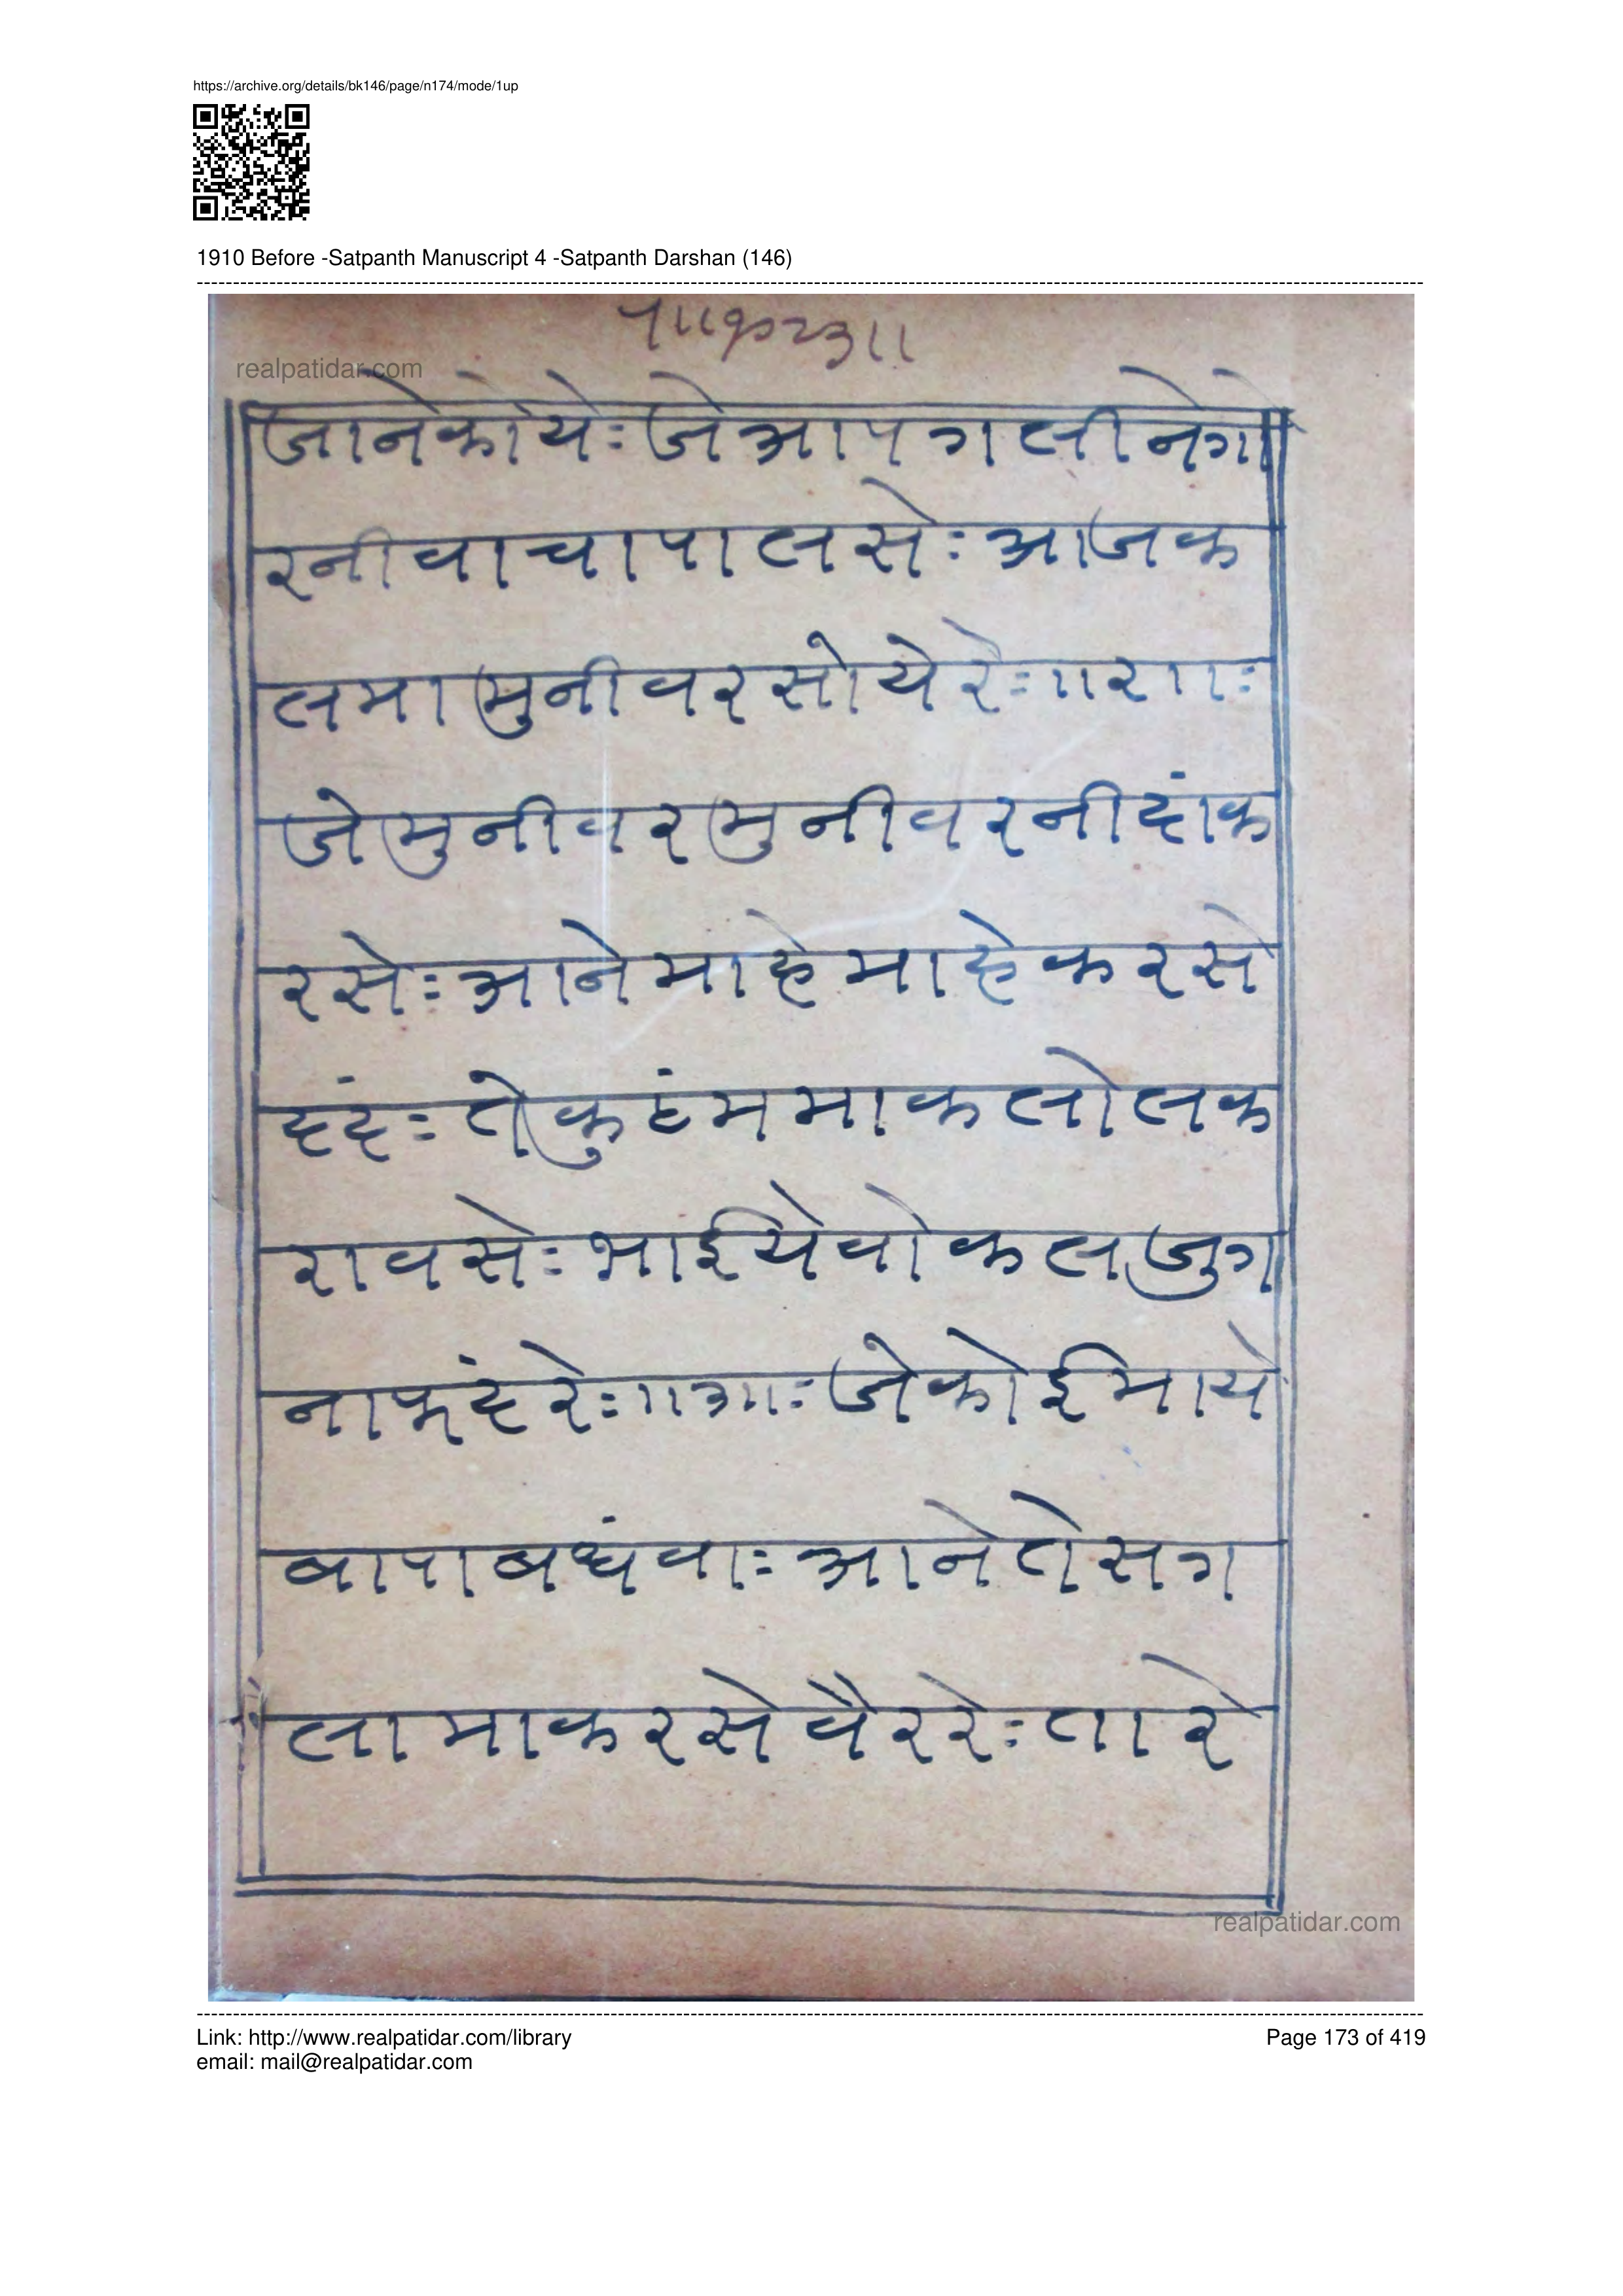 https://archive.org/details/bk146/page/n174/mode/1up
1910 Before -Satpanth Manuscript 4 -Satpanth Darshan (146)
realpatidar.com
जानेकोये:जेआपगलीनेगो
रनीवाचापालसे:आजक
लमामुनीवरसोयेरे:॥२॥:
जेमुनीवरमुनीवरनीदांक
रसे:आनेमाहेमाहेकरसे
दंदं:तेकुटंममाकलोलक
रावसे:भाईयेवोकलजुग
नाफंदरे:॥३॥:जेकोईमाये
बापबधंवा:आनेतेसग
लामाकरसेवैररे:तारे
realpatidar.com
Link: http://www.realpatidar.com/library
Page 173 of 419
email: mail@realpatidar.com